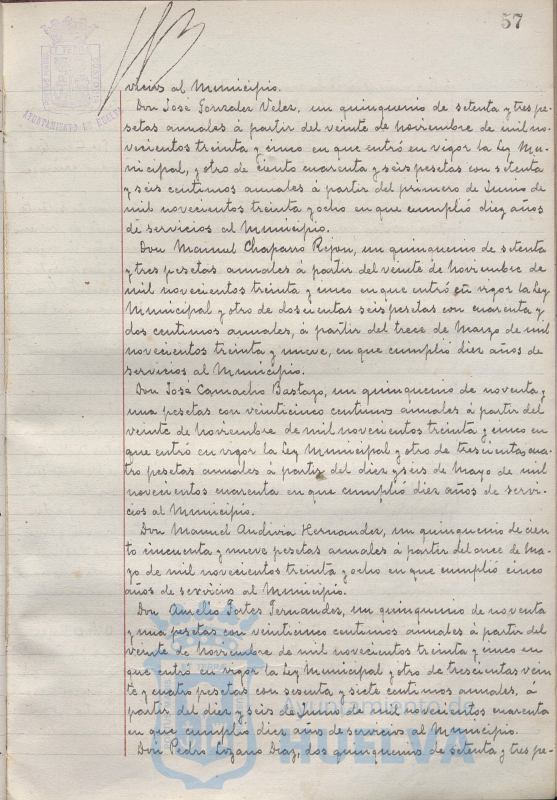 57
vicios al Municipio.
Don José Gonzalez Velez, un quinquenio de setenta y tres pe-
setas annales á partir del veinte de noviembre de mil no-
vecientos treinta y cinco en que entró en vigor la Ley Mu-
nicipal, y otro de ciento cuarenta y seis pesetas con setenta
y seis centimos annales á partir del primero de Junio de
mil novecientos treinta y ocho en que cumplió diez años
de servicios al Municipio.
Don Manuel Chaparro Rejon, un quinquenio de setenta
y tres pesetas annales á partir del veinte de noviembre de
mil novecientos treinta y cinco en que entró en vigor la Ley
Municipal y otro de doscientas seis pesetas con cuarenta y
dos centimos annales, á partir del trece de Marzo de mil
novecientos treinta y nueve, en que cumplió diez años de
servicios al Municipio.
Don José Camacho Bastazo, un quinquenio de noventa y
una pesetas con veinticinco centimos annales á partir del
veinte de noviembre de mil novecientos treinta y cinco en
que entró en vigor la Ley Municipal y otro de trescientas cua-
tro pesetas annales á partir del diez y seis de Mayo de mil
novecientos cuarenta en que cumplió diez años de servi-
cios al Municipio.
Don Manuel Andivia Hernandez, un quinquenio de cien-
to cincuenta y nueve pesetas annales á partir del once de Ma-
yo de mil novecientos treinta y ocho en que cumplió cinco
años de servicios al Municipio.
Don Amelio Fortes Fernandez, un quinquenio de noventa
y una pesetas con veinticinco centimos annales á partir del
veinte de noviembre de mil novecientos treinta y cinco en
que entró en vigor la Ley Municipal y otro de trescientas vein
te y cuatro pesetas con sesenta y siete centimos annales, á
partir del diez y seis de Junio de mil novecientos cuarenta
en que cumplió diez años de servicios al Municipio.
Don Pedro Lozano Diaz, dos quinquenios de setenta y tres pe-
AYUNTAMIENTO DE HUELVA
Ayuntamiento de
HUELVA